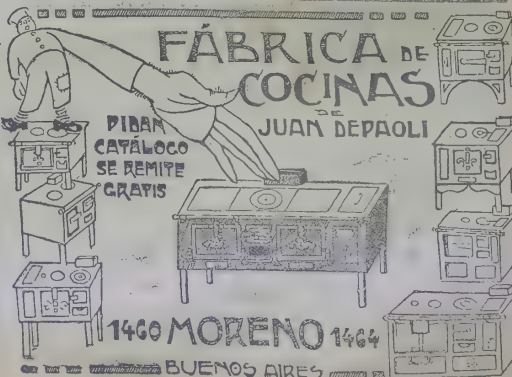 FÁBRICA DE
COCINAS
DE
JUAN DEPAOLI
PIDAN
CATÁLOGO
SE REMITE
GRATIS
1460 MORENO 1464
BUENOS AIRES